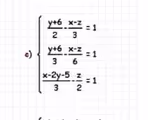 c) { (y+6)/2 - (x-z)/3 = 1
(y+6)/3 - (x-z)/6 = 1
(x-2y-5)/3 - z/2 = 1